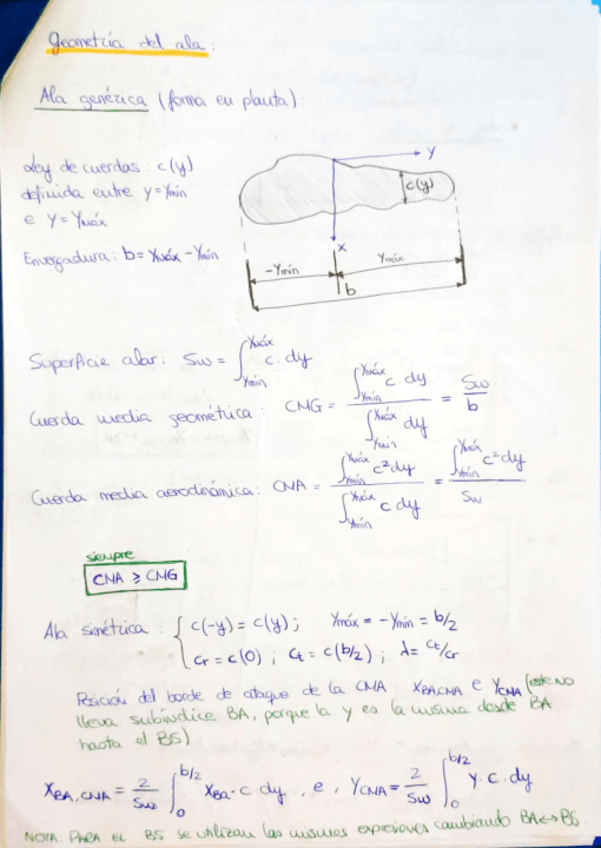 Geometría del ala:
Ala genérica (forma en planta):
Ley de cuerdas: c(y)
definida entre y=Ymín
e y=Ymáx
Envergadura: b= Ymáx - Ymín
Y
c(y)
x
-Ymín
Ymáx
b
Superficie alar: Sw = ∫_{Ymín}^{Ymáx} c·dy
Cuerda media geométrica: CMG = ∫_{Ymín}^{Ymáx} c·dy / ∫_{Ymín}^{Ymáx} dy = Sw/b
Cuerda media aerodinámica: CMA = ∫_{Ymín}^{Ymáx} c²dy / ∫_{Ymín}^{Ymáx} c dy = ∫_{Ymín}^{Ymáx} c²dy / Sw
siempre
CMA ⩾ CMG
Ala simétrica: { c(-y) = c(y); Ymáx = -Ymín = b/2
Cr = c(0); Ct = c(b/2); λ = Ct/Cr
Posición del borde de ataque de la CMA: XBA,CMA e YCMA (este no
lleva subíndice BA, porque la y es la misma desde BA
hasta el BS)
XBA,CMA = 2/Sw ∫_0^{b/2} XBA·c·dy, e, YCMA = 2/Sw ∫_0^{b/2} y·c·dy
NOTA: PARA EL BS se utilizan las mismas expresiones cambiando BA↔BS.